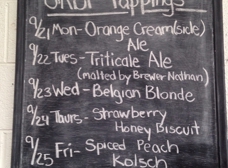 Tappings
9/21 Mon- Orange Cream(side)
Ale
9/22 Tues- Triticale Ale
(malted by Brewer Nathan)
9/23 Wed- Belgian Blonde
9/24 Thurs- Strawberry
Honey Biscuit
9/25 Fri- Spiced Peach
Kolsch